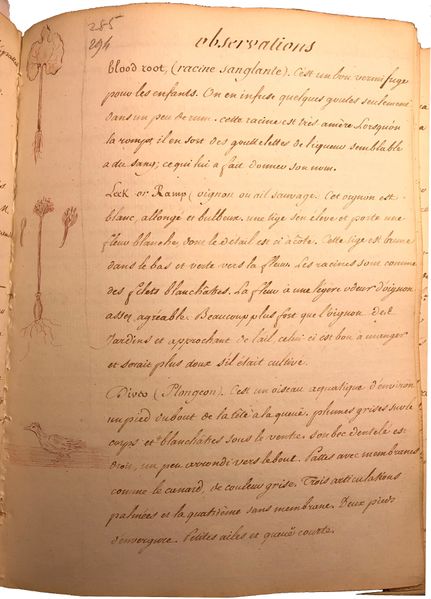 285
294
observations
blood root, (racine sanglante). C'est un bon vermifuge
pour les enfants. On en infuse quelques goutes seulement
dans un peu de rum. cette racine est très amère. Lorsqu'on
la rompt, il en sort des gouttelettes de liqueur semblable
a du sang; ce qui lui a fait donner son nom.
Leek or Ramp (oignon ou ail sauvage. Cet oignon est
blanc, allongé et bulbeux. une tige s'en élève et porte une
fleur blanche, dont le détail est ci à côté. Cette tige est brune
dans le bas et verte vers la fleur. Les racines sont comme
des filets blanchâtres. La fleur à une légère odeur d'oignon
assez agréable. Beaucoup plus fort que l'oignon de
Jardins et approchant de l'ail, celui ci est bon à manger
et serait plus doux s'il était cultivé.
(Plongeon). C'est un oiseau aquatique d'environ
un pied du bout de la tête a la queue, plumes grises sur le
corps et blanchâtres sous le ventre. Son bec dentelé est
droit, un peu arrondi vers le bout. Pattes avec membranes
comme le canard, de couleur grise. Trois articulations
palmées et la quatrième sans membrane. Deux pieds
d'envergure. Petites ailes et queuë courte.